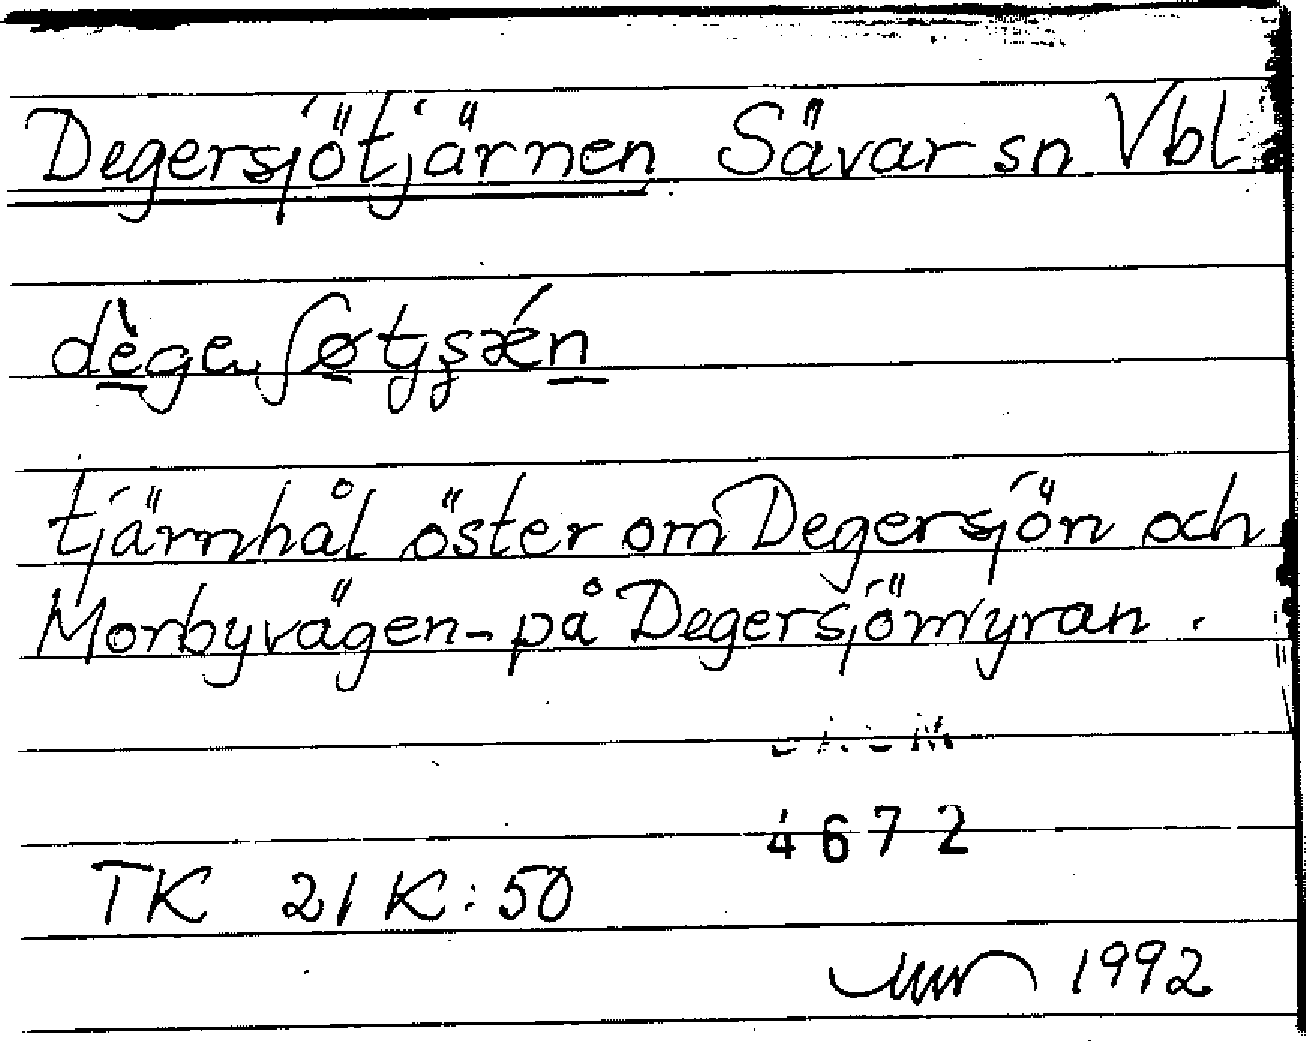 Degersjötjärnen Sävar sn Vbl
tjärnhål öster om Degersjön och
Morbyvägen - på Degersjömyran.
4672
TK 21 K:50
1992